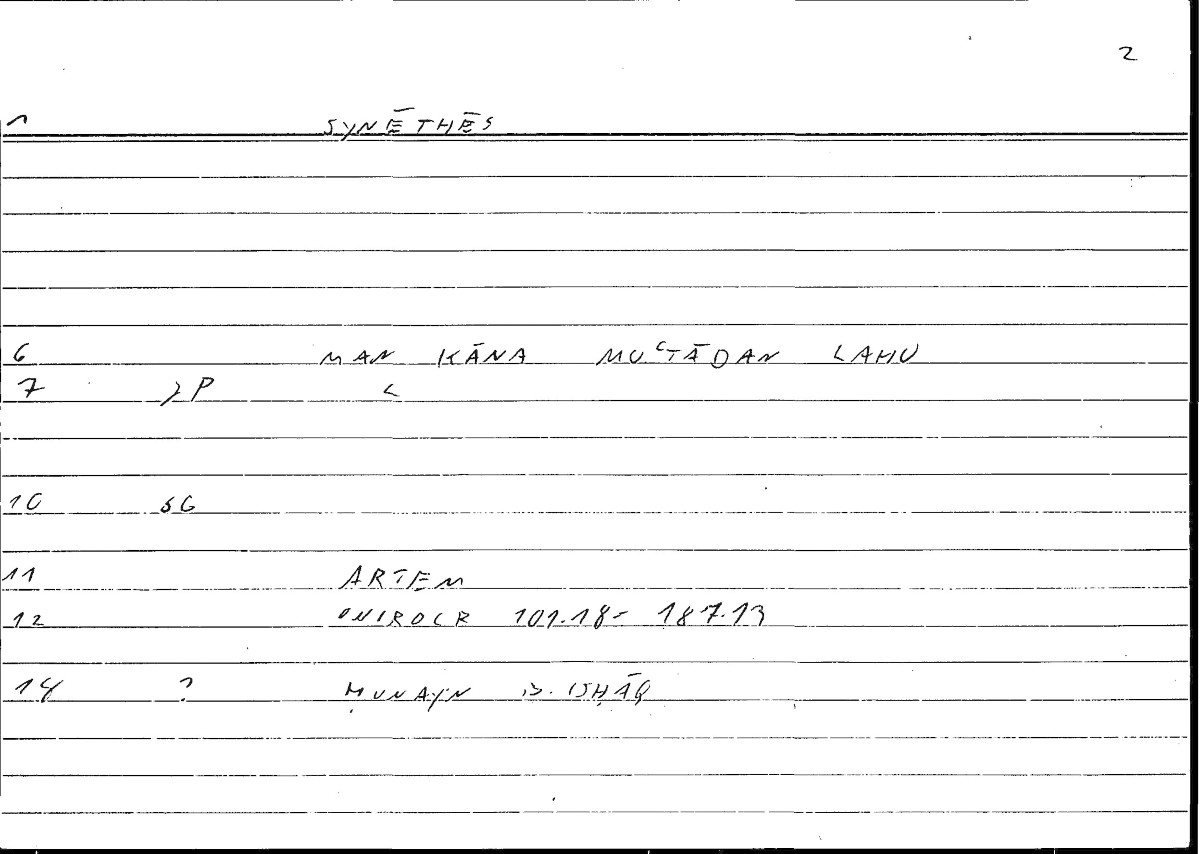 2
1 SYNĒTHĒS
6 MAN KĀNA MUʿTĀDAN LAHU
7 >P <
10 SG
11 ARTEM
12 ONIROCR 101.18- 187.13
14 ? ḤUNAYN B. ISḤĀQ